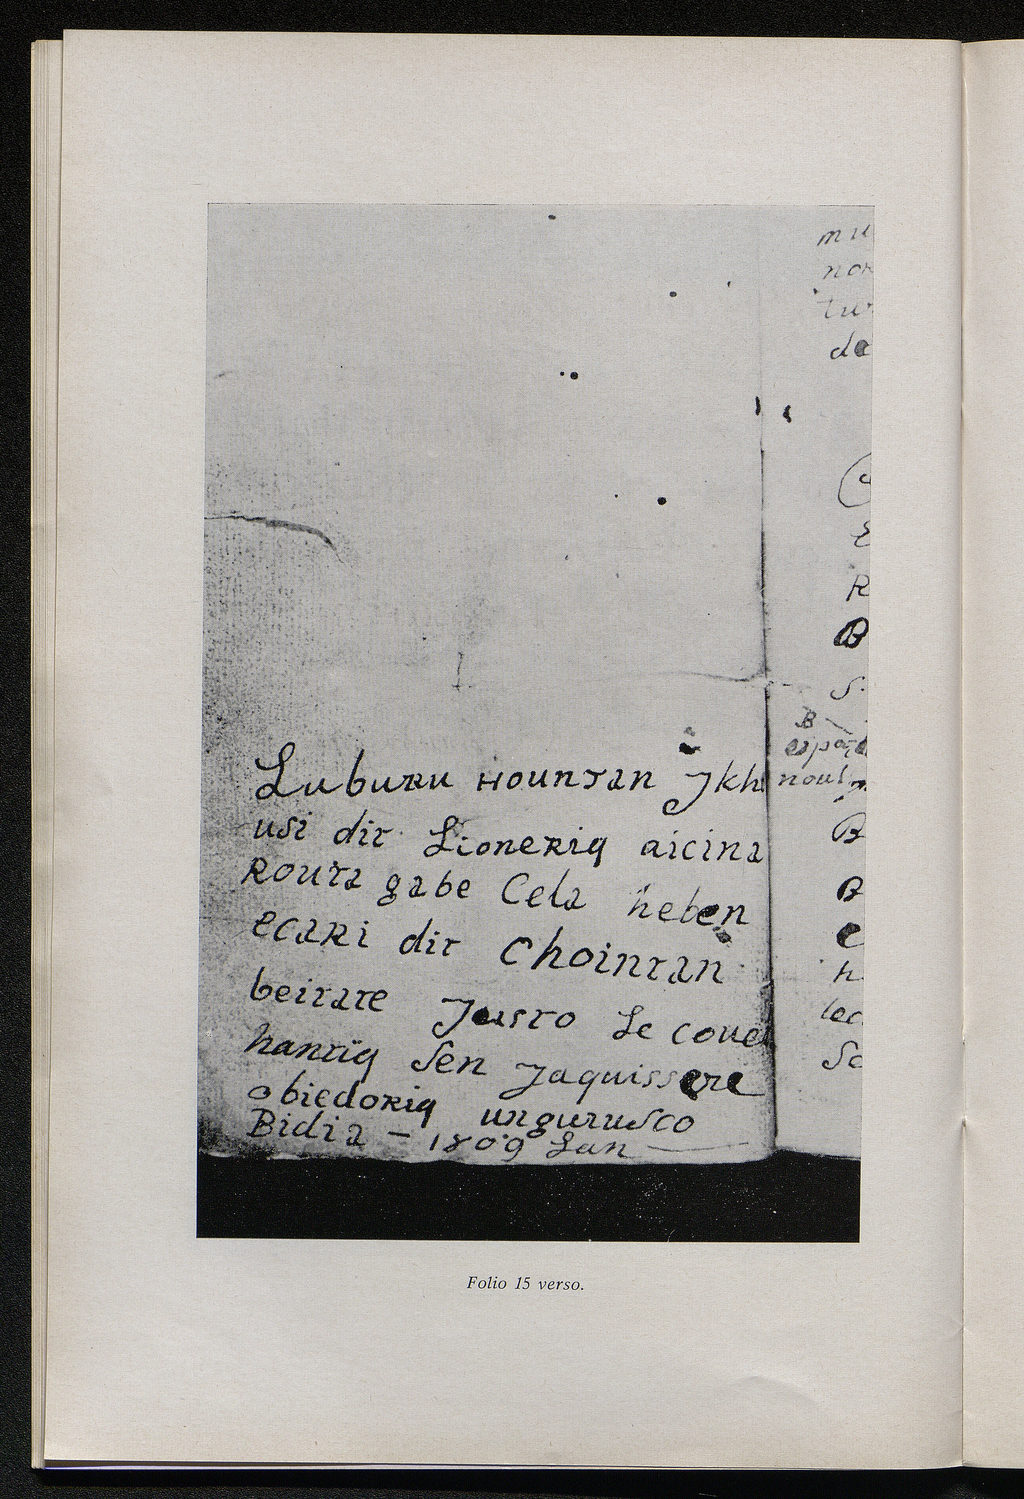 Luburu hountan Jkh
usi dit Lioneriq aicina
Routa gabe Cela heben
ecari dit chointan
beitate Justo Le coue
hantiq Sen Jaquissere
obiedoriq ungurusco
Bidia — 1809 Lan —
mu
nor
tur
da
E
R
B
S.
B
noul
B
B
e
h
lec
Sc
Folio 15 verso.